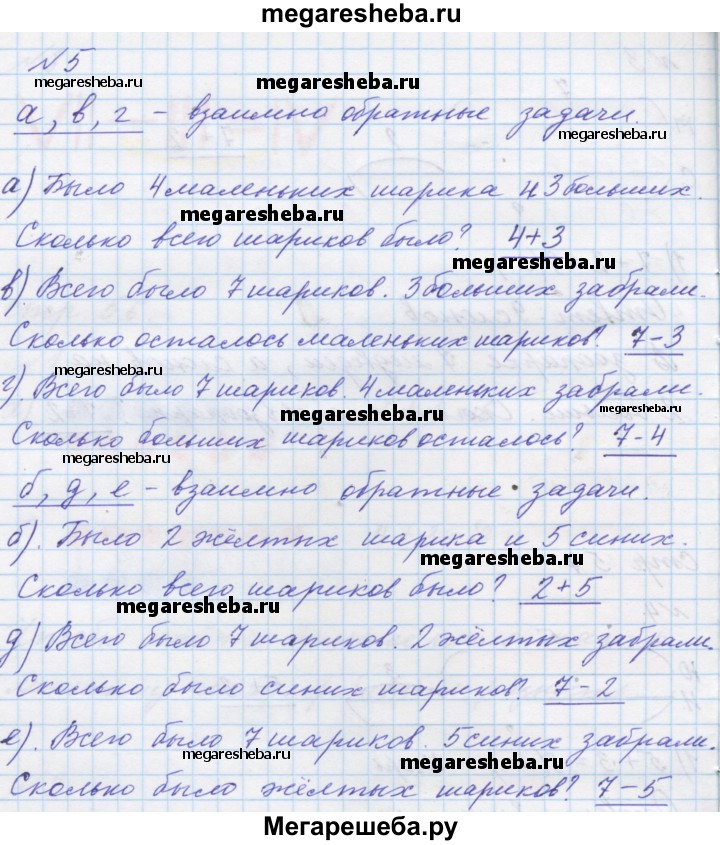 megaresheba.ru
№5
megaresheba.ru
megaresheba.ru
а, в, г – взаимно обратные задачи.
megaresheba.ru
а) Было 4 маленьких шарика и 3 больших.
megaresheba.ru
Сколько всего шариков было? 4+3
megaresheba.ru
в). Всего было 7 шариков. 3 больших забрали.
megaresheba.ru
Сколько осталось маленьких шариков? 7–3
г). Всего было 7 шариков. 4 маленьких забрали.
megaresheba.ru
megaresheba.ru
Сколько больших шариков осталось? 7-4
megaresheba.ru
б, д, е – взаимно обратные задачи.
б). Было 2 жёлтых шарика и 5 синих.
megaresheba.ru
Сколько всего шариков было? 2+5
megaresheba.ru
д) Всего было 7 шариков. 2 жёлтых забрали.
megaresheba.ru
Сколько было синих шариков? 7–2
е). Всего было 7 шариков. 5 синих забрали.
megaresheba.ru
megaresheba.ru
Сколько было жёлтых шариков? 7–5
Мегарешеба.ру